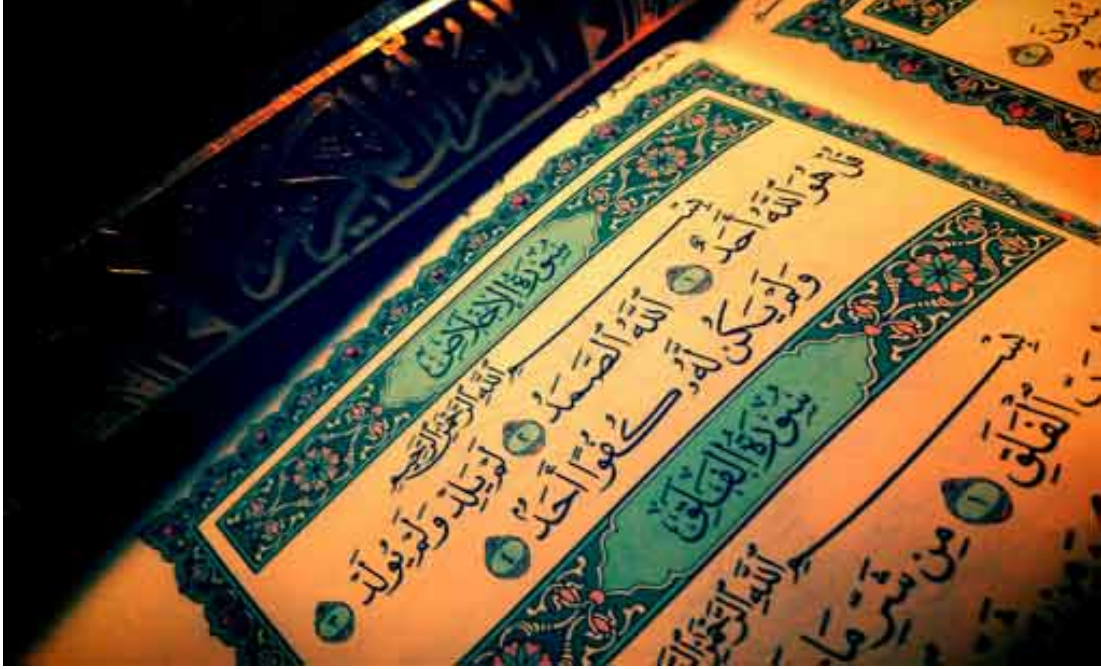 سُورَةُ الإِخْلَاصِ
بِسْمِ ٱللَّهِ ٱلرَّحْمَٰنِ ٱلرَّحِيمِ
قُلْ هُوَ ٱللَّهُ أَحَدٌ ١ ٱللَّهُ ٱلصَّمَدُ ٢ لَمْ يَلِدْ وَلَمْ يُولَدْ ٣
وَلَمْ يَكُن لَّهُۥ كُفُوًا أَحَدٌۢ ٤
سُورَةُ الفَلَقِ
بِسْمِ ٱللَّهِ ٱلرَّحْمَٰنِ
ٱلْفَلَقِ ١ مِن شَرِّ مَا